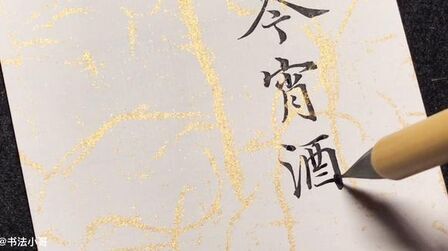 今宵酒
@书法小哥